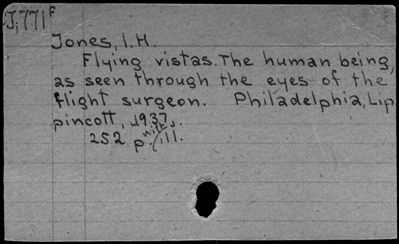 J,771f
Jones, I.H.
Flying vistas. The human being,
as seen through the eyes of the
flight surgeon. Philadelphia, Lip
pincott, 1937.
252 p. with ill.